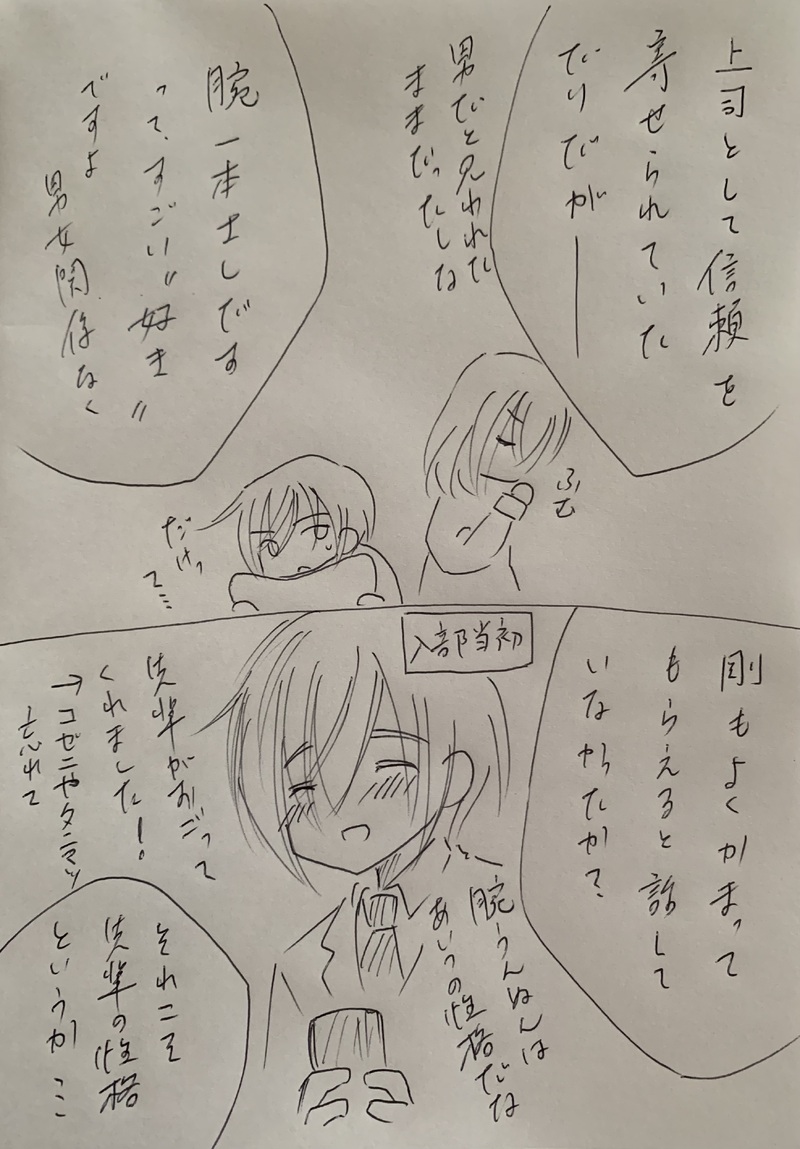 上司として信頼を
寄せられていた
だけだが――
男だと思われた
ままだったしな
腕一本推しです
って、すごい"好き"
ですよ
男女関係なく
ふむ
だけっ
て…
入部当初
剛もよくかまって
もらえると話して
いなかったか?
先輩がおごって
くれました!
→コゼニヤタニマッ
忘れて
腕うんぬんは
あいつの性格だな
それこそ
先輩の性格
というか…